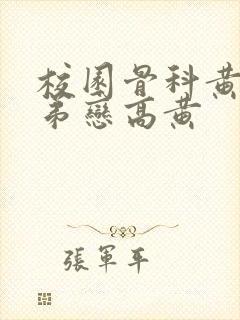 校園骨科黃
弟戀高黃
張軍平